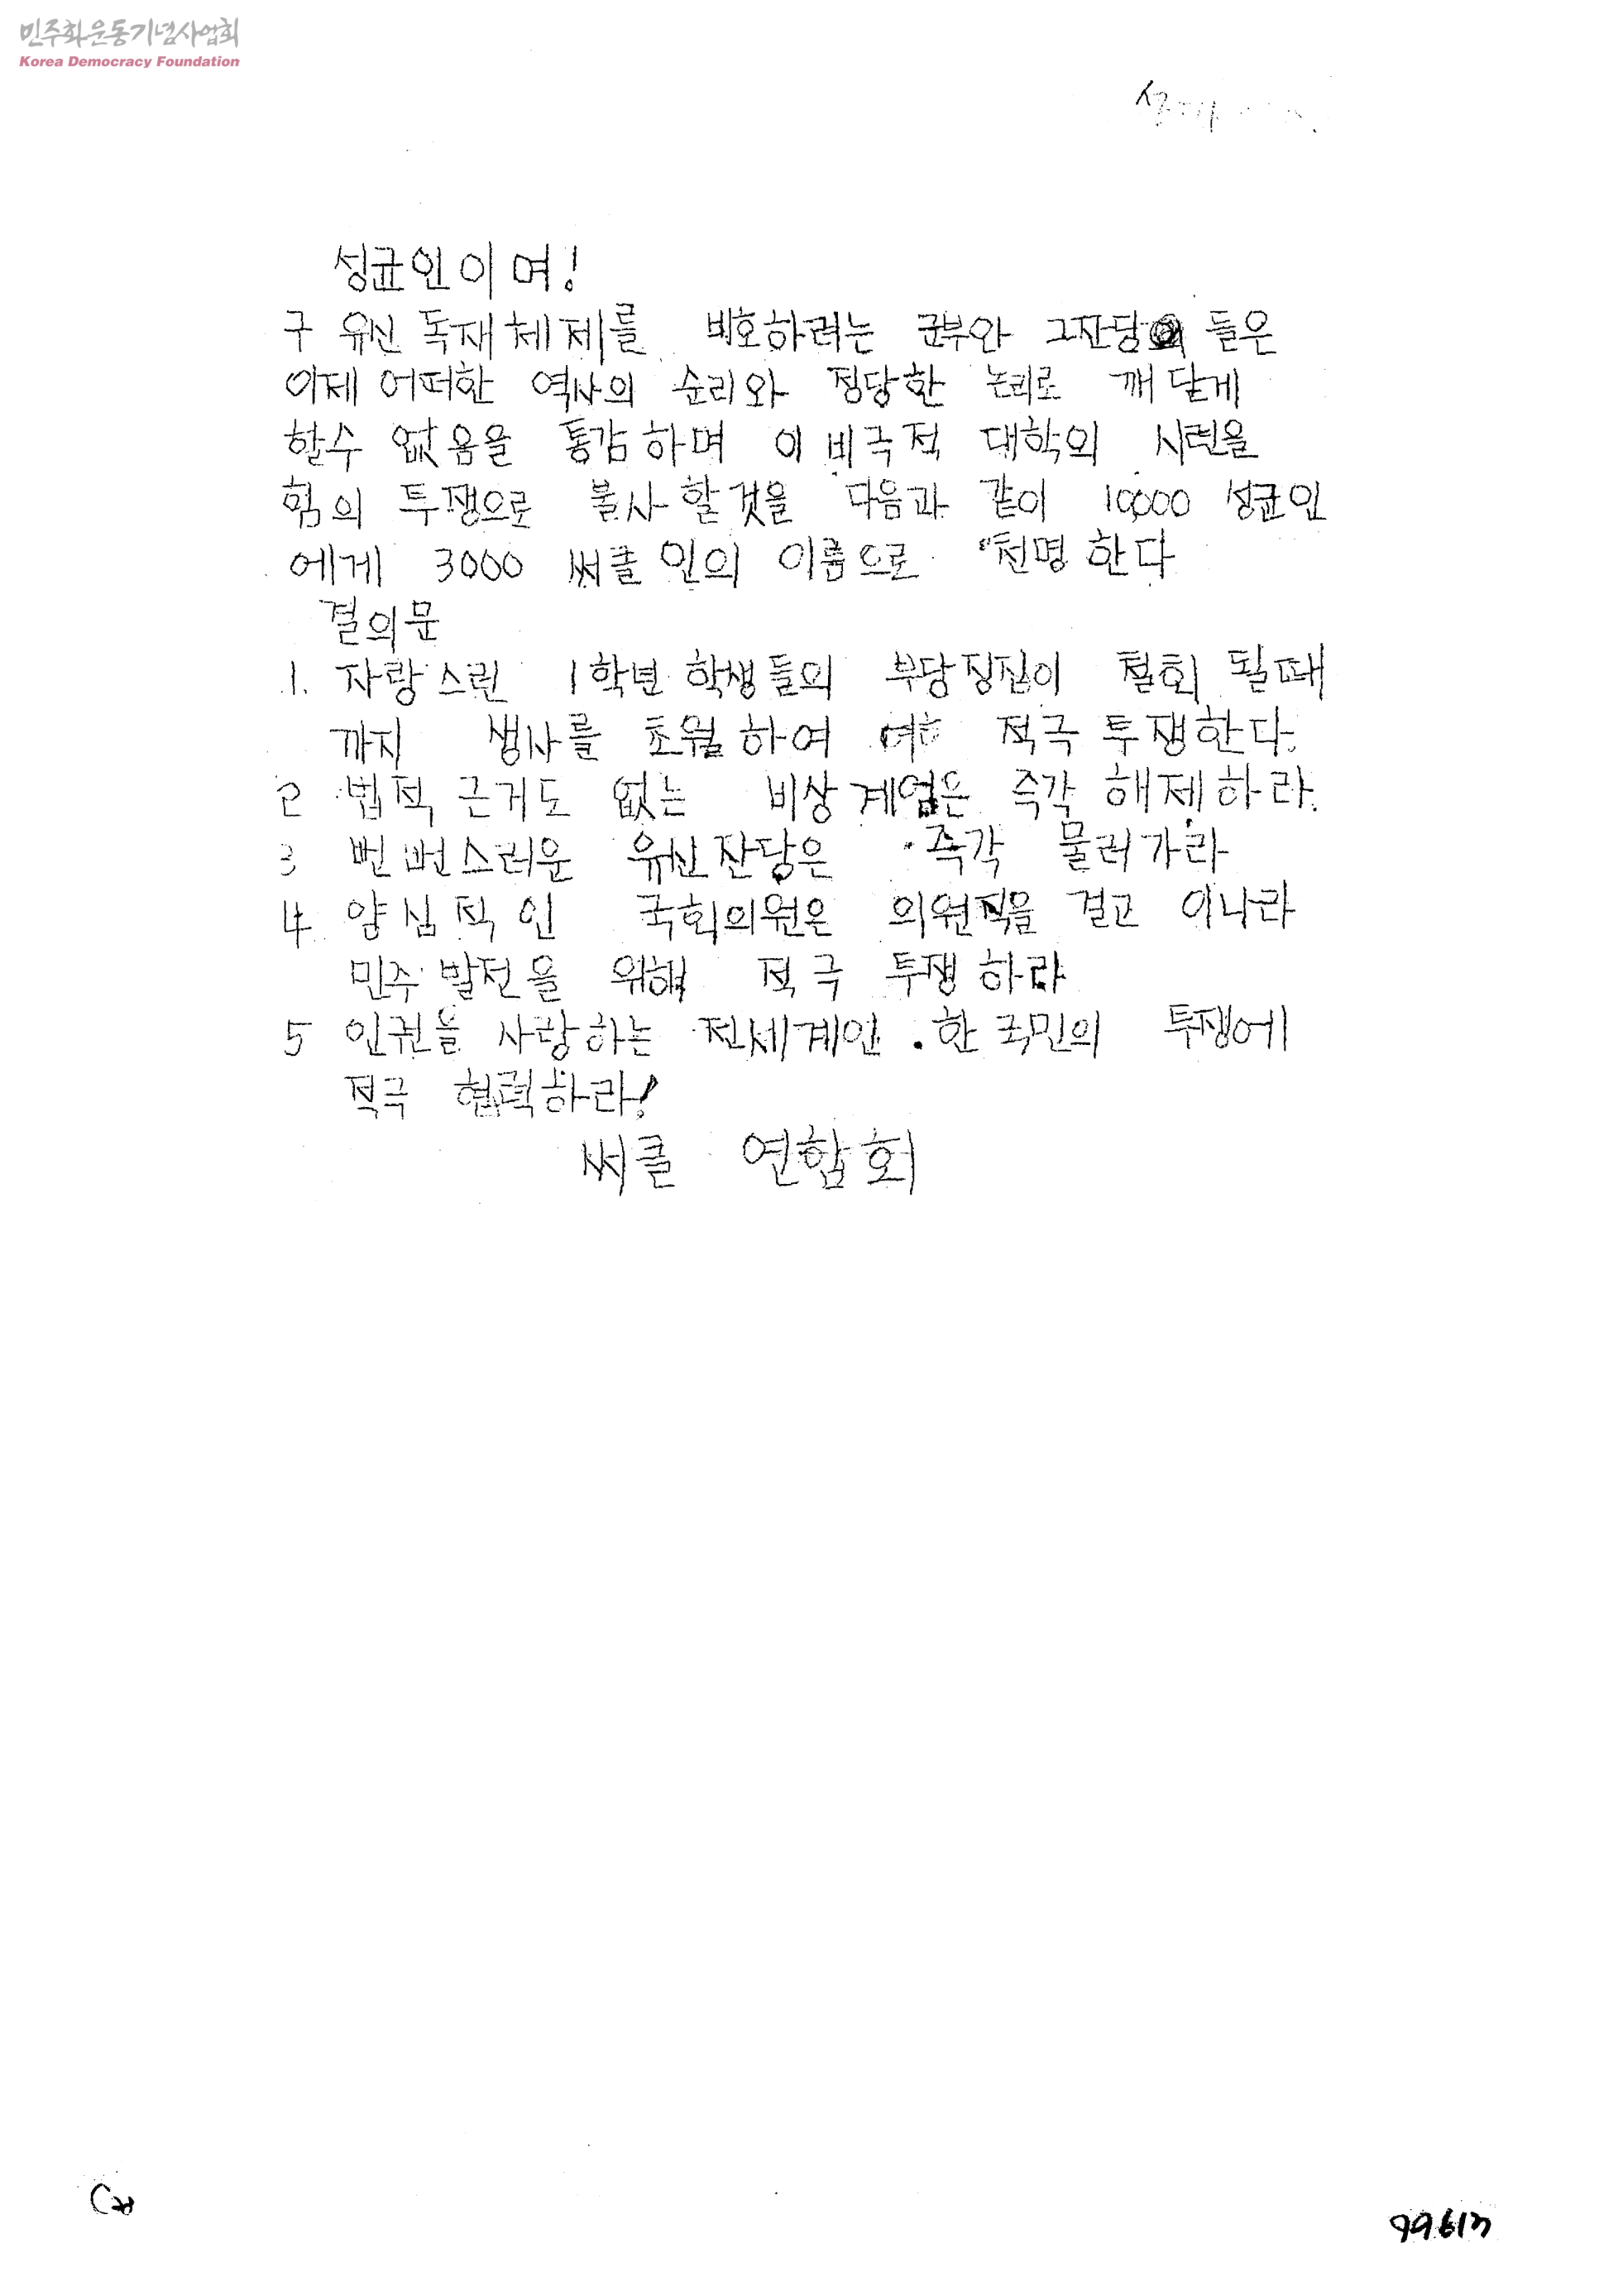 민주화운동기념사업회
Korea Democracy Foundation
성균인이여!
구 유신 독재체제를 비호하려는 군부와 그잔당 들은
이제 어떠한 역사의 순리와 정당한 논리로 깨닫게
할수 없음을 통감하며 이 비극적 대학의 시련을
힘의 투쟁으로 불사할것을 다음과 같이 10,000 성균인
에게 3000 써클인의 이름으로 천명한다
결의문
1. 자랑스런 1학년 학생들의 부당징집이 철회 될때
까지 생사를 초월하여 적극 투쟁한다.
2 법적 근거도 없는 비상계엄은 즉각 해제하라.
3 뻔뻔스러운 유신잔당은 즉각 물러가라
4 양심적인 국회의원은 의원직을 걸고 이나라
민주발전을 위해 적극 투쟁하라
5 인권을 사랑하는 전세계인. 한국민의 투쟁에
적극 협력하라!
써클 연합회